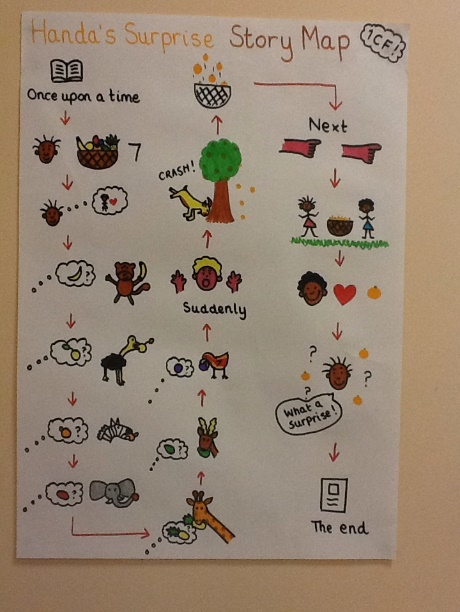 Handa's Surprise Story Map
1CF!
Once upon a time
7
?
?
?
?
?
?
?
CRASH!
Suddenly
Next
?
?
?
What a
surprise!
The end